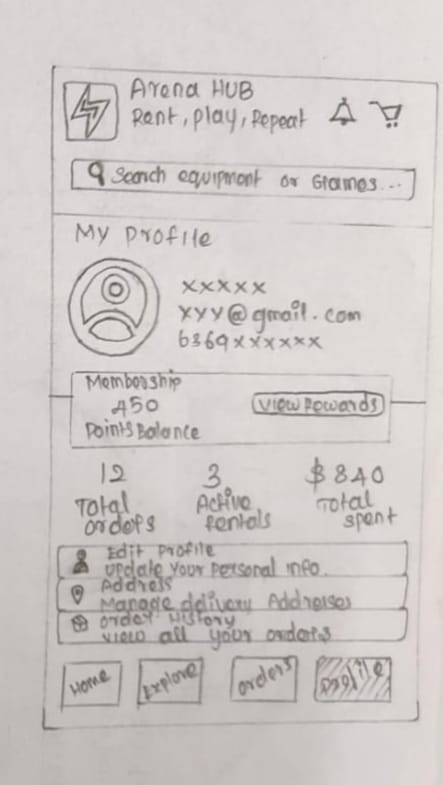 Arena HUB
Rent, play, Repeat
Search equipment or Games...
My Profile
xxxxx
xyy@gmail.com
6369xxxxxx
Membership
450
Points Balance
View Rewards
12
Total orders
3
Active rentals
$840
Total spent
Edit Profile
Update Your Personal Info.
Address
Manage delivery Addresses
Order History
View all your orders
Home
Explore
Orders
Profile